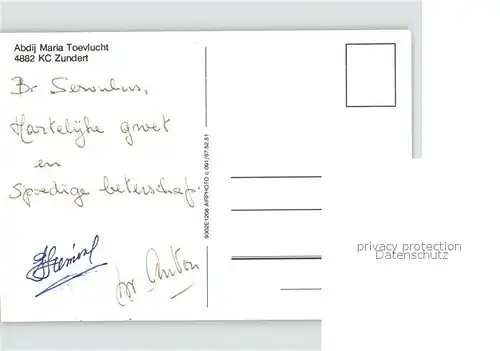 Abdij Maria Toevlucht
4882 KC Zundert
Br Servulus,
Hartelijke groet
en
spoedige beterschap.
br Anton
9302E1208 AIRPHOTO c 091/87.52.81
privacy protection
Datenschutz